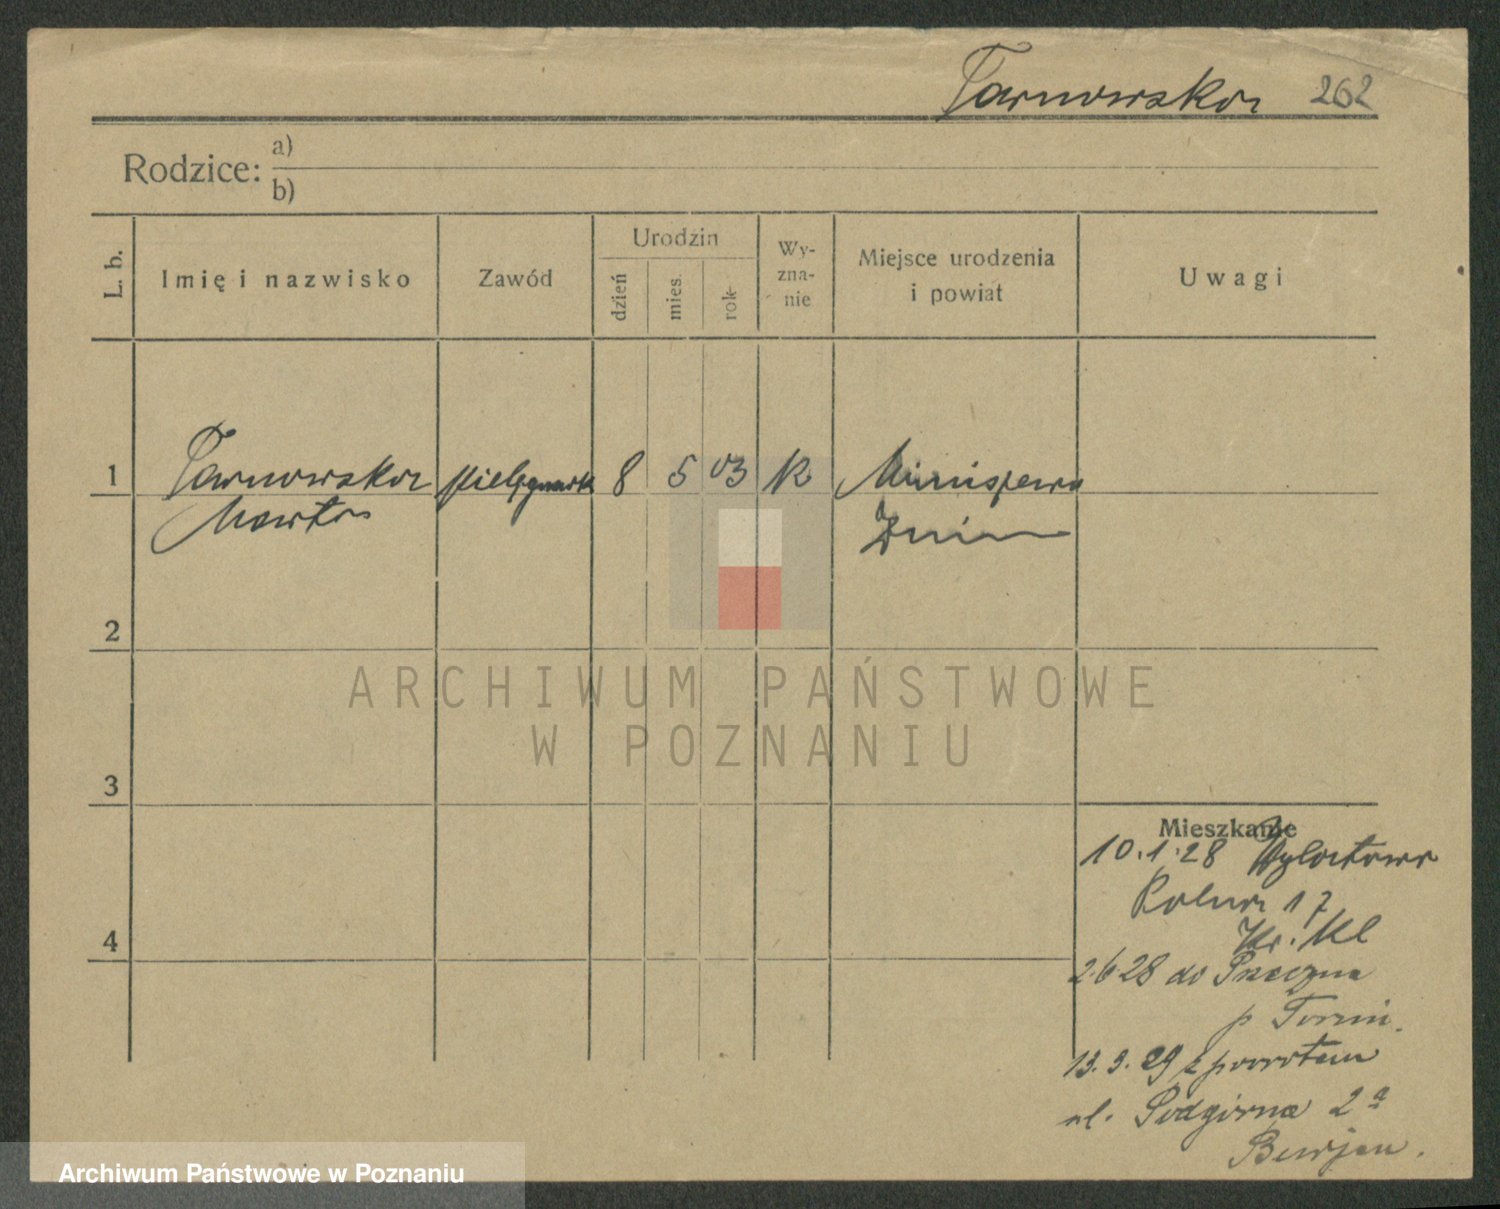 Tarnowska 262
Rodzice: a)
b)
L. b.
Imię i nazwisko
Zawód
Urodzin
dzień
mies.
rok
Wy-
zna-
nie
Miejsce urodzenia
i powiat
Uwagi
1 Tarnowska pielęgniark 8 5 03 K
Marta Żnin
2
3
4
Mieszkanie
10.1.28
Rolna 17
2.6.28 do
p
13.3.29 z powrotem
ul. Podgórna 2a
ARCHIWUM PAŃSTWOWE
W POZNANIU
Archiwum Państwowe w Poznaniu